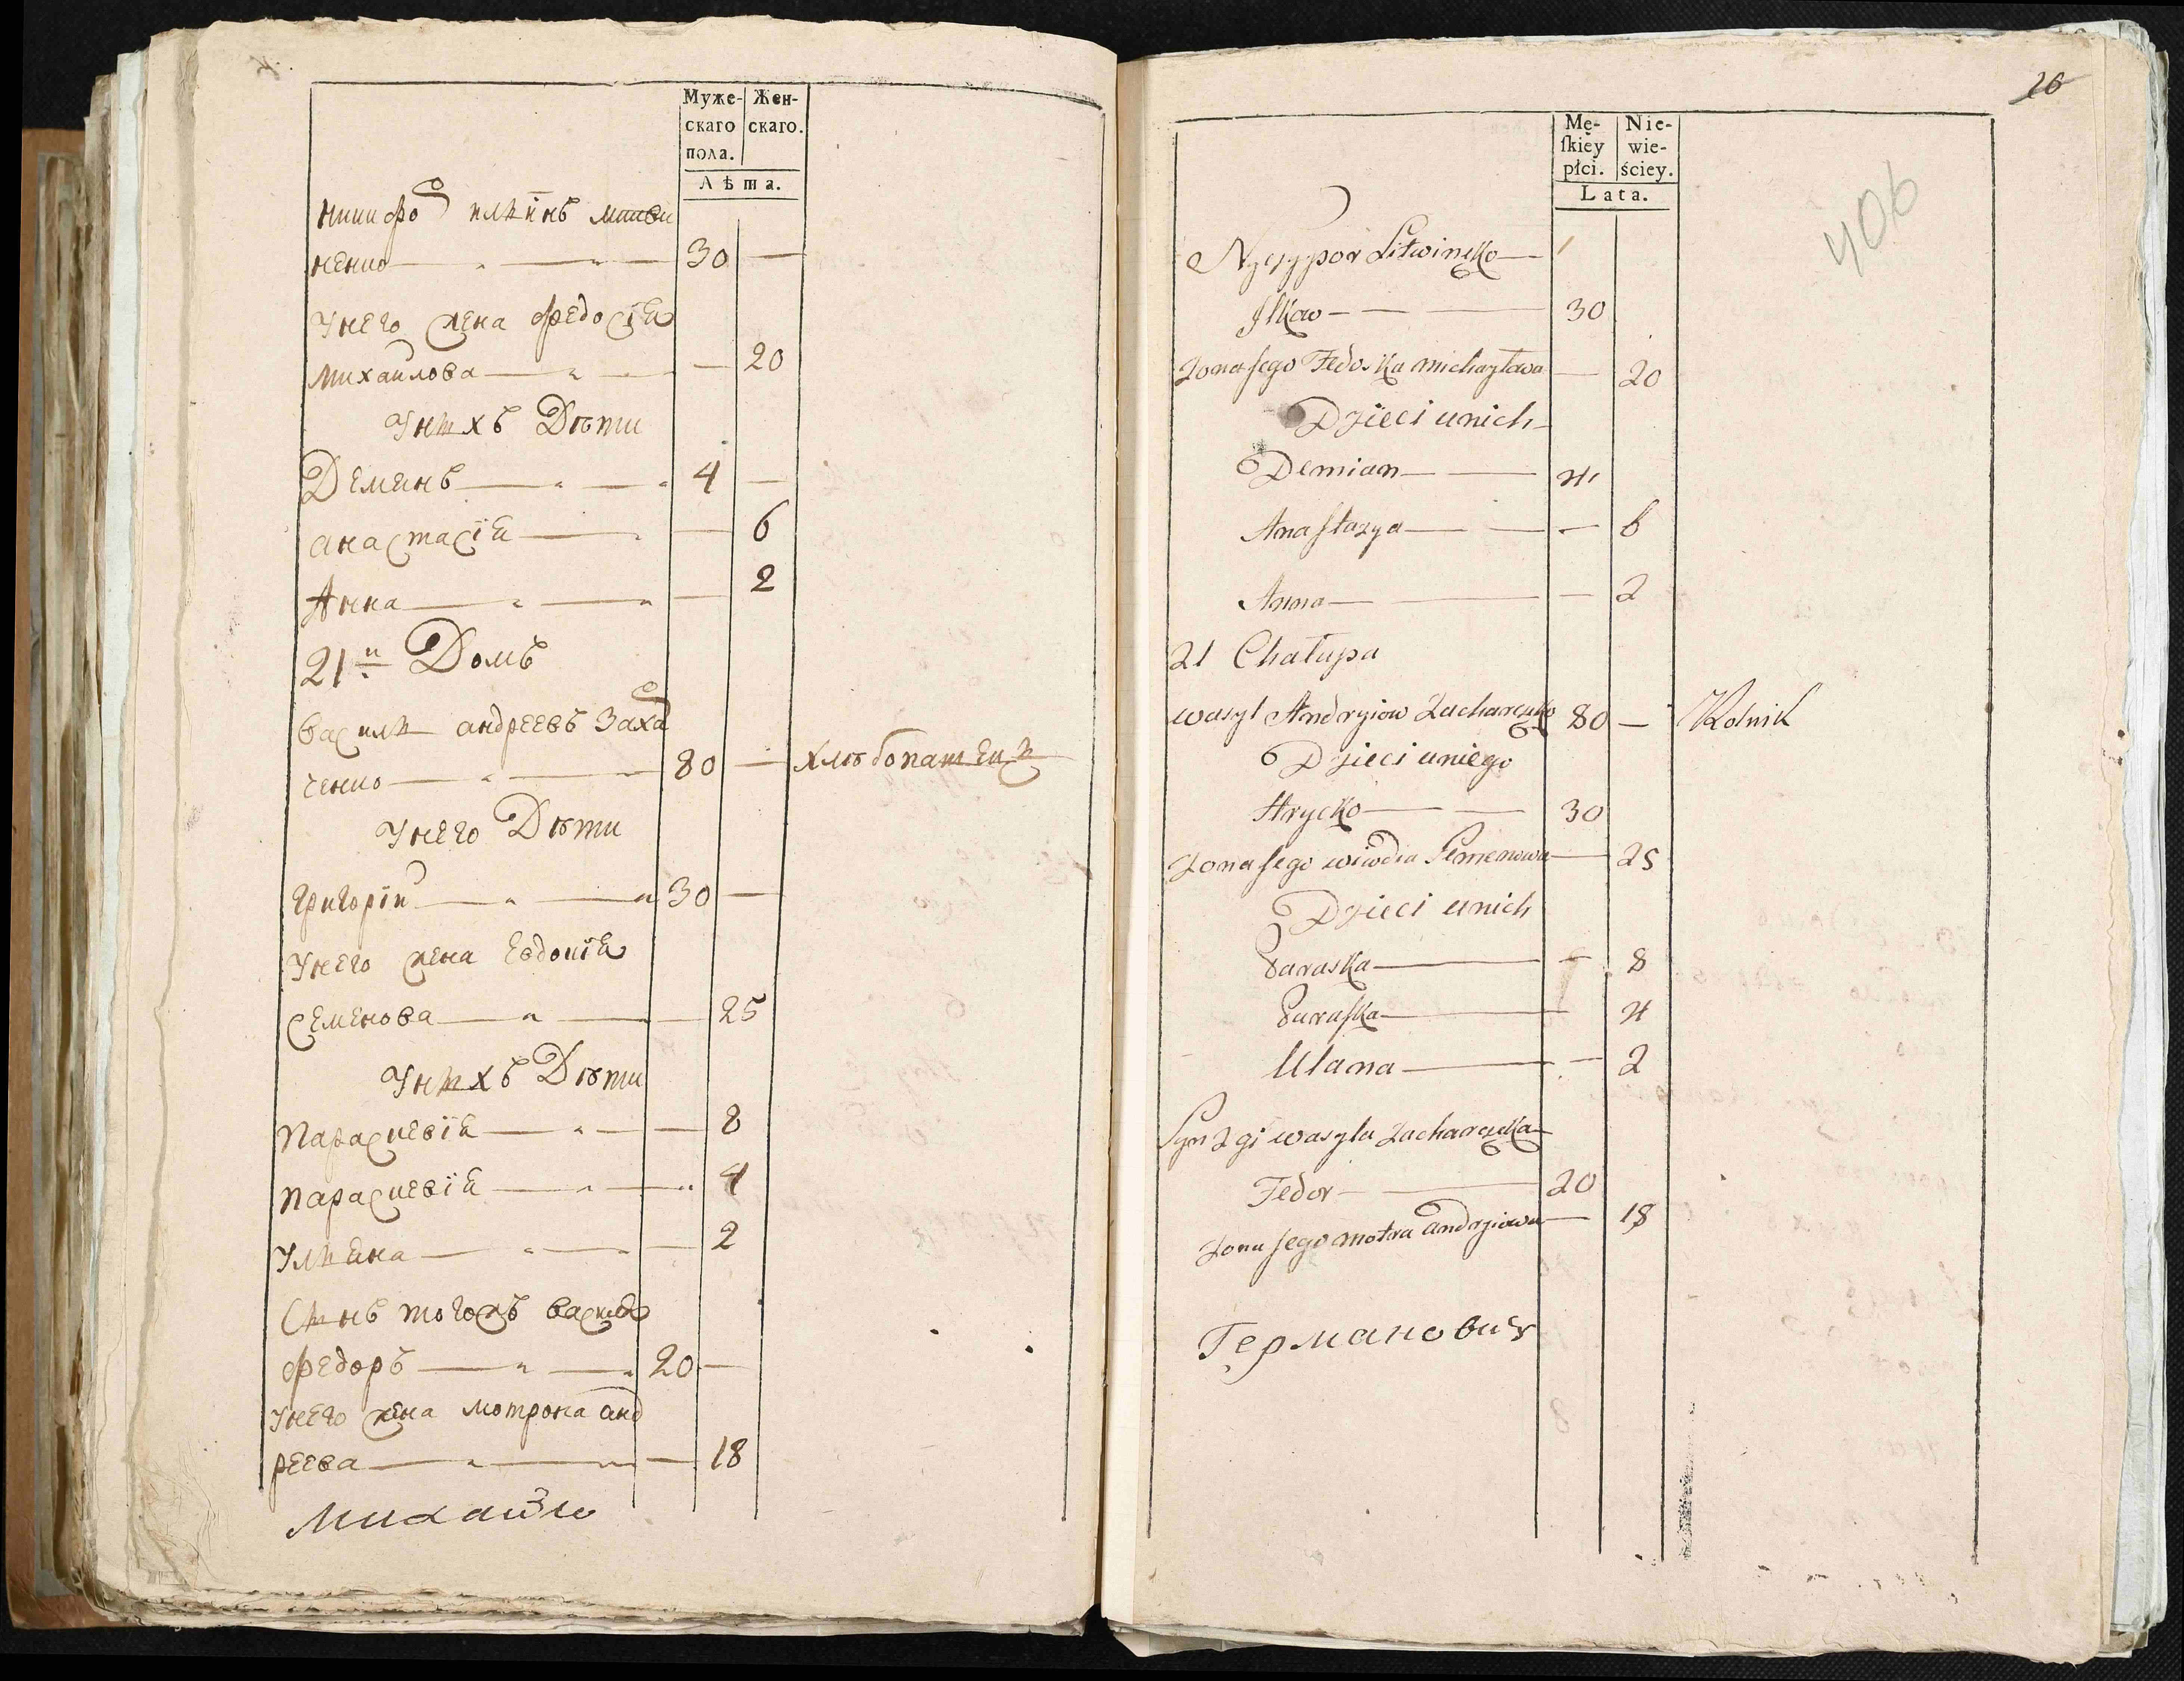 Муже-
скаго
пола.
Жен-
скаго.
Лѣта.
никифоръ илкинъ литви
ненко 30 —
Унего жена федосія
михаилова — 20
Унихъ Дѣти
Демянъ 4 —
анастасія — 6
Анна — 2
21й Домъ
василъ андреевъ Захар
ченко 80 — хлѣбопашецъ
Унего Дѣти
григорій 30 —
Унего жена Евдокія
семенова — 25
Унихъ Дѣти
параскевія — 8
параскевія — 4
Улияна — 2
Сынъ тогожъ василя
федоръ 20 —
Унего жена мотрона анд
реева — 18
Михайло
26
406
Mę-
ſkiey
płci.
Nie-
wie-
ściey.
Lata.
Nyczypor Litwinęko
Ilkow 30
Zona jego Fedoska michayłowa — 20
Dzieci unich
Demian 4
Anastazya — 6
Anna — 2
21 Chałupa
wasyl Andryiow Zacharęko 80 — Rolnik
Dzieci uniego
Hrycko 30
Zona jego wiwdia Semenowa — 25
Dzieci unich
Paraska — 8
Paraſka — 4
Ulana — 2
Syn 2gi wasyla Zacharęka
Fedor 20
Zona jego motra andryiowa — 18
Германович